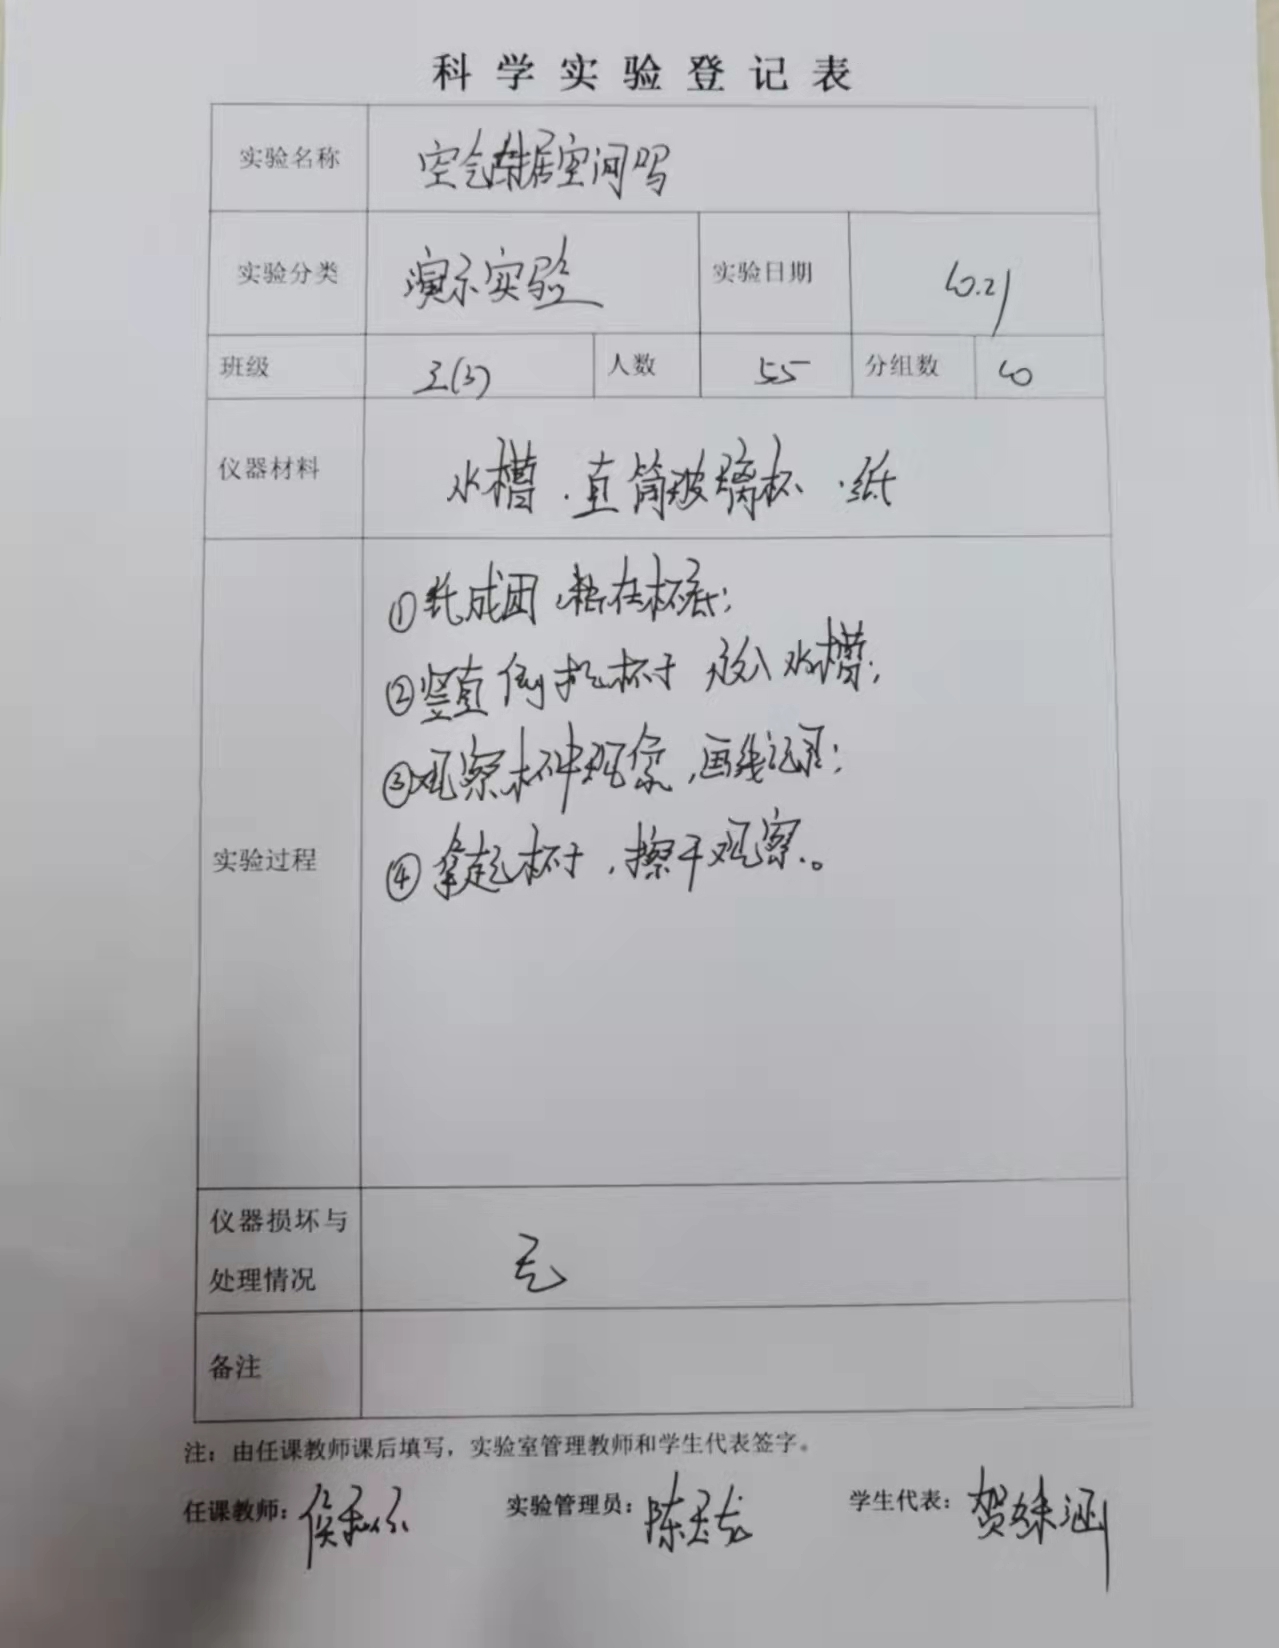 科学实验登记表
实验名称 空气占据空间吗
实验分类 演示实验 实验日期 10.21
班级 三(3) 人数 55 分组数 10
仪器材料 水槽.直筒玻璃杯.纸
实验过程
①纸成团,粘在杯底;
②竖直倒扣杯子放入水槽;
③观察杯中现象,画线记录;
④拿起杯子,擦干观察。
仪器损坏与
处理情况 无
备注
注:由任课教师课后填写,实验室管理教师和学生代表签字。
任课教师: 实验管理员: 陈 龙 学生代表: 贺姝涵